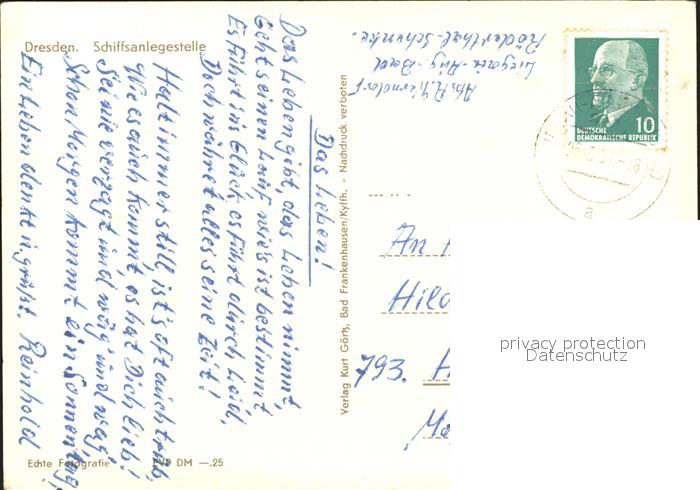 Dresden. Schiffsanlegestelle
Das Leben!
Das Leben gibt, das Leben nimmt,
Geht seinen Lauf wie's ist bestimmt
Es führt ins Glück es führt durch Leid,
Doch währet alles seine Zeit!
Halt immer still, ist's oft auch trüb,
Wie es auch kommt, es hat Dich lieb!
Sei nie verzagt und wäg und wag,
Schon Morgen kommt ein Sonnentag,
Ein Leben denkt u. grüßt. Reinhold
Echte Fotografie EVP DM —.25
Verlag Kurt Görtz, Bad Frankenhausen/Kyffh. - Nachdruck verboten
Abs. R.
Röderthal-Schenke.
10
DEUTSCHE
DEMOKRATISCHE REPUBLIK
An
Hild
793.
privacy protection
Datenschutz